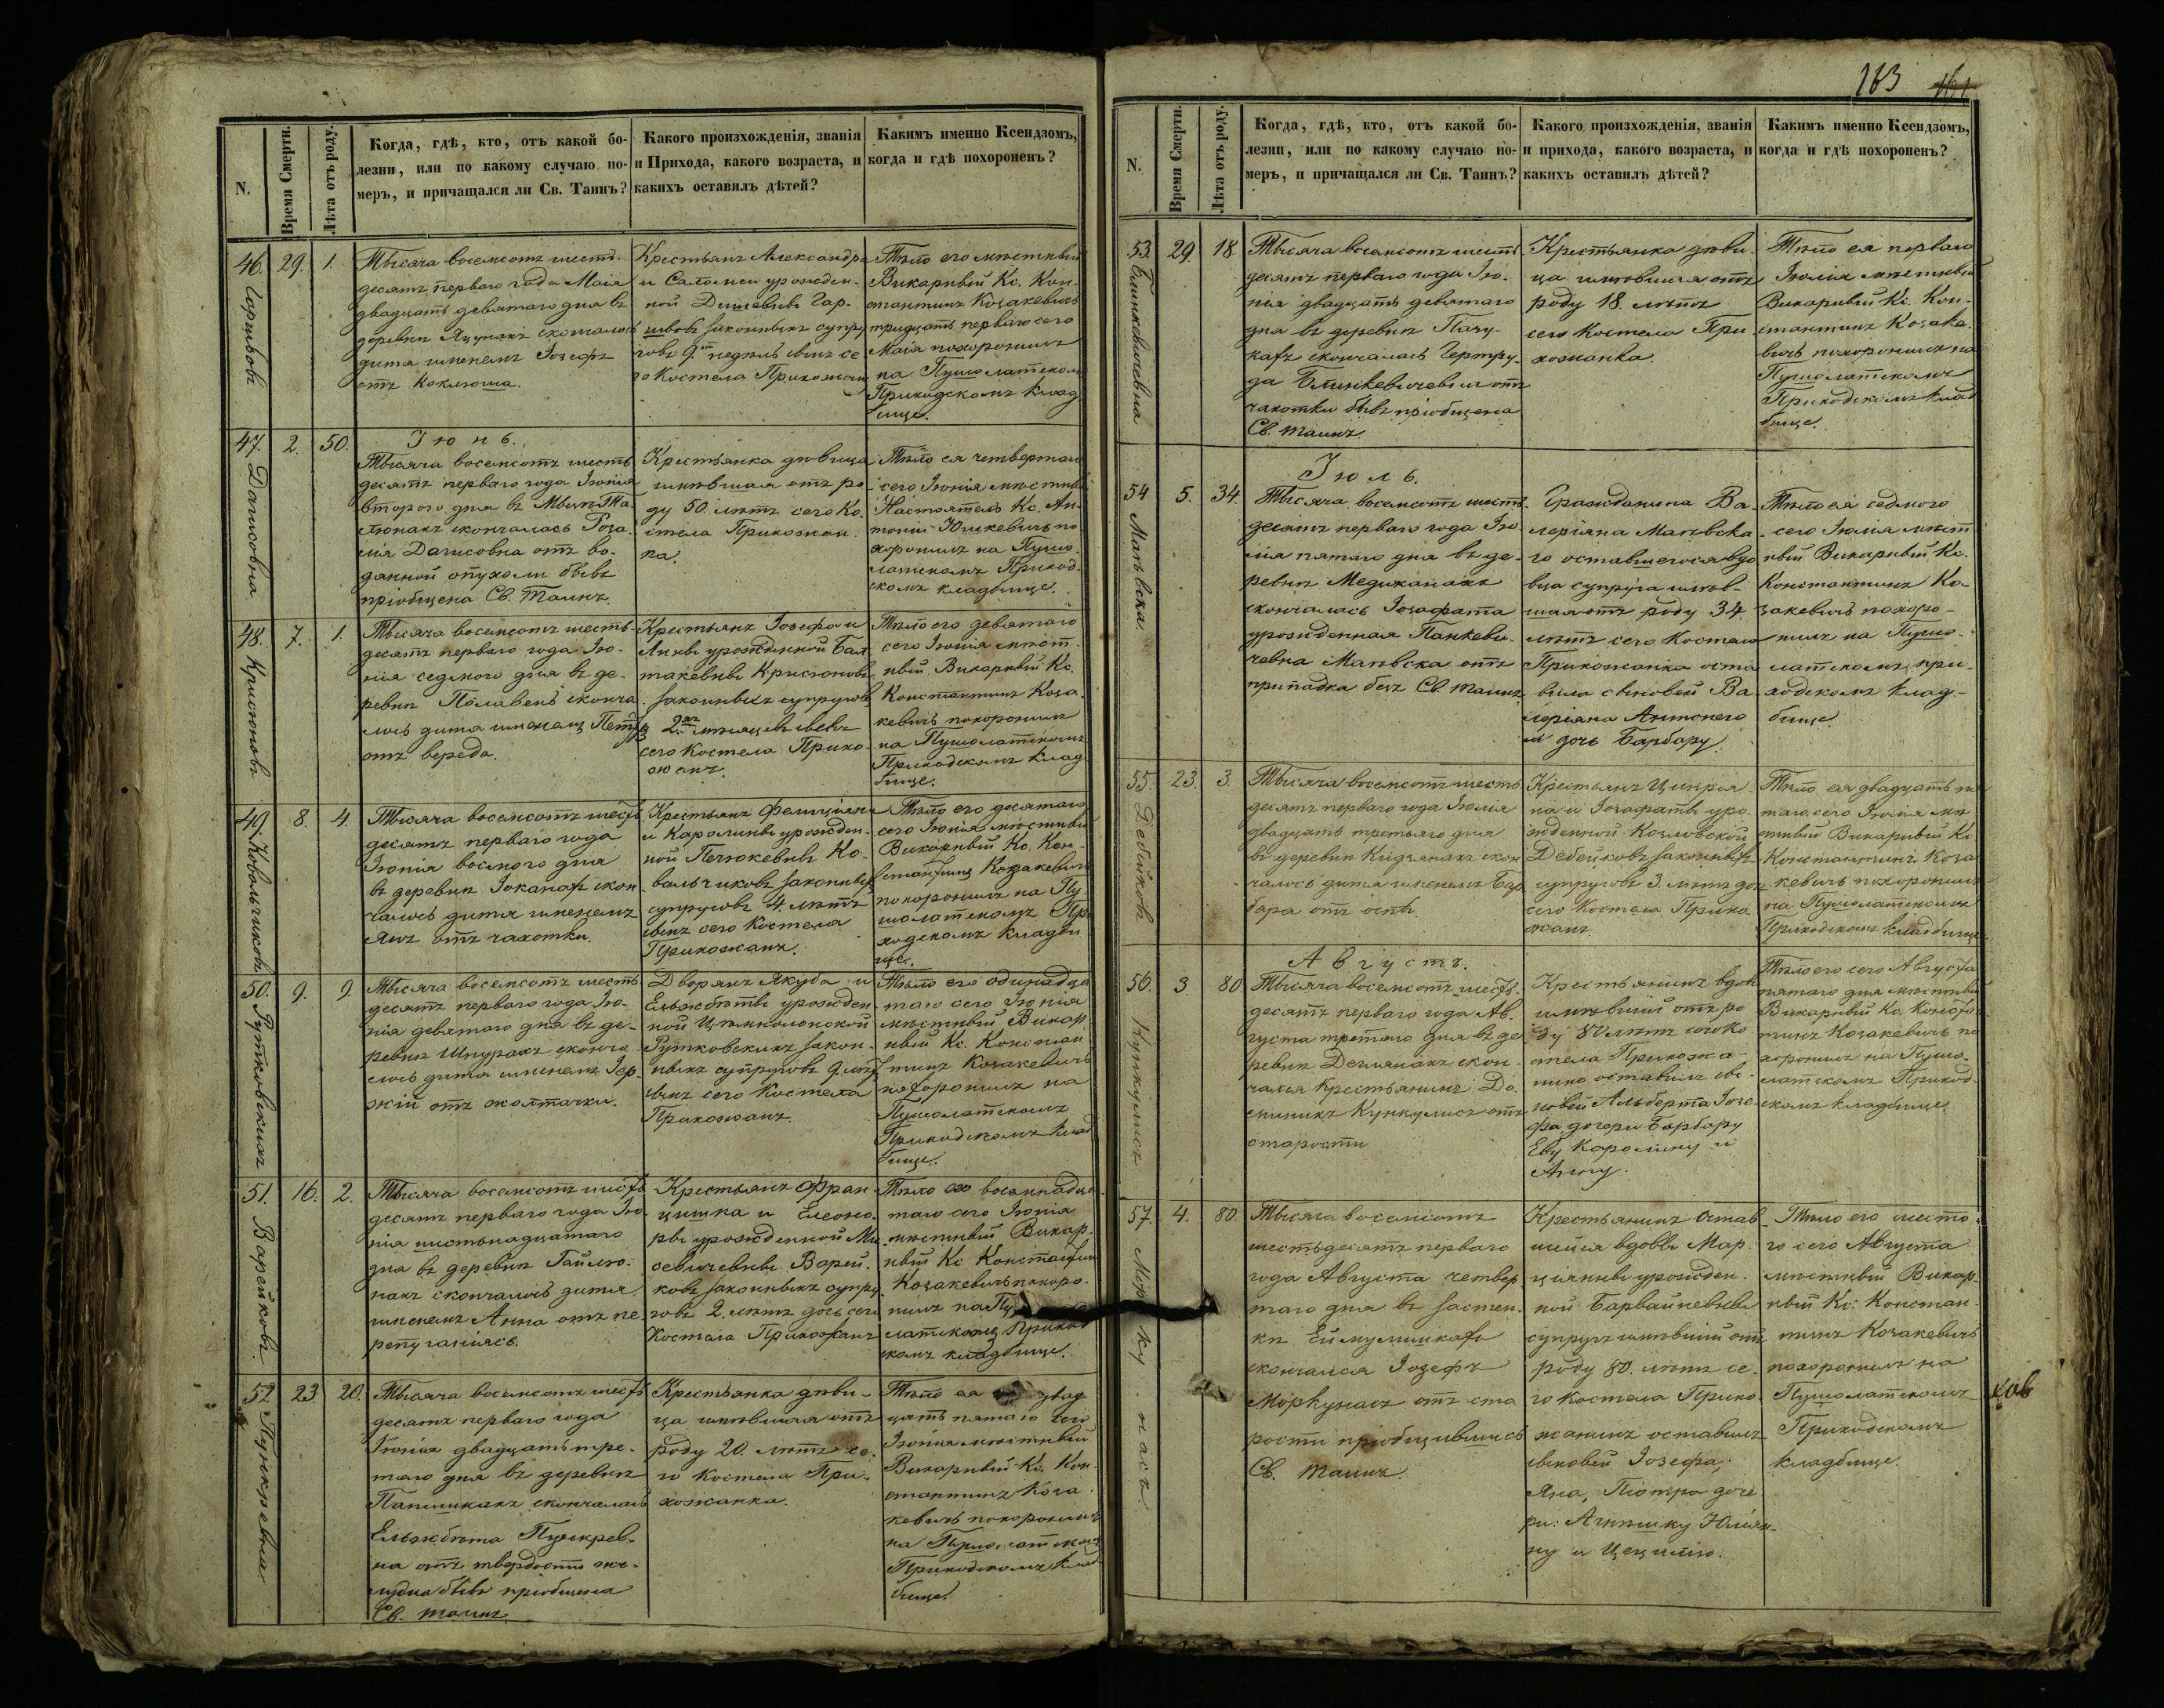 N.
Время Смерти.
Лѣта отъ роду.
Когда, гдѣ, кто, отъ какой бо-
лезни, или по какому случаю по-
меръ, и причащался ли Св. Таинъ?
Какого произхожденія, званія
и Прихода, какого возраста, и
какихъ оставилъ дѣтей?
Какимъ именно Ксендзомъ,
когда и гдѣ похороненъ?
46.
29.
1.
Тысяча восемсотъ шестъ-
десятъ перваго года Маія
двадцать девятаго дня въ
деревни скончалось
дитя именемъ Іозефъ
отъ коклюша.
Крестьянъ Александра
и Саломеи урожден-
ной
законныхъ супру
говъ 9. недѣль сынъ се
го Костела Прихожан
Тѣло его мѣстный
Викарный Кс. Кон-
стантинъ Козакевичъ
тридцать перваго сего
Маія похоронилъ
на Пушолатскомъ
Приходскомъ клад
бище.
47
2.
50.
Дагисовна
Іюнь.
Тысяча восемсотъ шесть
десятъ перваго года Іюнія
втораго дня въ
скончалась Роза
лія Дагисовна отъ во-
дянной опухоли бывъ
пріобщена Св. Таинъ.
Крестьянка дѣвица
имѣвшая отъ ро
ду 50 лѣтъ сего Ко.
стела Прихожан
ка.
Тѣло ея четвертаго
сего Іюнія мѣстный
Настоятель Кс. Ан
тоній Юшкевичъ по
хоронилъ на Пушо
латскомъ Приход-
скомъ кладбище.
48.
7.
1.
Кристоновъ
Тысяча восемсотъ шесть-
десятъ перваго года Ію-
нія седмого дня въ де-
ревни сконча
лось дитя именемъ Петръ
отъ вереда.
Крестьянъ Іозефа и
Анны урожденной Бал
такевны Кристоновъ
законныхъ супруговъ
2 мѣсяцевъ сынъ
сего Костела Прихо-
жанъ.
Тѣло его девятаго
сего Іюнія мѣст-
ный Викарный Кс.
Константинъ Коза-
кевичъ похоронилъ
на Пушолатскомъ
Приходскомъ клад
бище.
49.
8.
4.
Ковальчиковъ
Тысяча восемсотъ шесть
десятъ перваго года
Іюнія восмого дня
въ деревни скон
чалось дитя именемъ
Янъ отъ чахотки.
Крестьянъ Фелиціана
и Каролины урожден-
ной Печюкевны Ко-
вальчиковъ законныхъ
супруговъ 4. лѣтъ
сынъ сего Костела
Прихожанъ.
Тѣло его десятаго
сего Іюнія мѣстный
Викарный Кс. Кон-
стантинъ Козакевичъ
похоронилъ на Пу-
шолатскомъ При
ходскомъ кладби
ще.
50.
9.
9.
Рутковскихъ
Тысяча восемсотъ шесть
десятъ перваго года Ію-
нія девятаго дня въ де-
ревни Шпуракъ сконча
лось дитя именемъ Іер-
жій отъ жолтачки.
Дворянъ Якуба и
Ельжбѣты урожден
ной
Рутковскихъ закон-
ныхъ супруговъ 9. лѣтъ
сынъ сего Костела
Прихожанъ.
Тѣло его одинадца
таго сего Іюнія
мѣстный Викар
ный Кс. Констан
тинъ Козакевичъ
похоронилъ на
Пушолатскомъ
Приходскомъ клад
бище.
51.
16.
2.
Варейковъ.
Тысяча восемсотъ шесть
десятъ перваго года Ію
нія шестьнадцатаго
дня въ деревни Гайлю-
накъ скончалось дитя
именемъ Анна отъ пе
репугані​ясь.
Крестьянъ Фран
цишка и Елеоно-
ры урожденной Ми
севичевны Варей-
ковъ законныхъ супру
говъ 2. лѣтъ дочь сего
Костела Прихожанъ
Тѣло ея восемнадца
таго сего Іюнія
мѣстный Викар-
ный Кс Константин
Козакевичъ похоро-
нилъ на Пу
латскомъ Приход
скомъ кладбище.
52
23.
20.
Пункревна.
Тысяча восемсотъ шесть
десятъ перваго года
Іюнія двадцать тре-
таго дня въ деревни
скончалась
Ельжбѣта Пункрев-
на отъ твердости же-
лудка бывъ пріобщена
Св. Таинъ.
Крестьянка дѣви-
ца имѣвшая отъ
роду 20. лѣтъ се-
го Костела При-
хожанка.
Тѣло ея двад
цать пятаго сего
Іюнія мѣстный
Викарный Кс. Кон-
стантинъ Коза
кевичъ похоронилъ
на Пушолатскомъ
Приходскомъ клад
бище.
163
N.
Время Смерти.
Лѣта отъ роду.
Когда, гдѣ, кто, отъ какой бо-
лезни, или по какому случаю по-
меръ, и причащался ли Св. Таинъ?
Какого произхожденія, званія
и прихода, какого возраста, и
какихъ оставилъ дѣтей?
Какимъ именно Ксендзомъ,
когда и гдѣ похороненъ?
53.
29.
18
Блинкевичевна
Тысяча восемсотъ шесть
десятъ перваго года Ію-
нія двадцать девятаго
дня въ деревни
скончалась Гертру-
да Блинкевичевна отъ
чахотки бывъ пріобщена
Св. Таинъ.
Крестьянка дѣви-
ца имѣвшая отъ
роду 18. лѣтъ
сего Костела При
хожанка.
Тѣло ея перваго
Іюлія мѣстный
Викарный Кс. Кон-
стантинъ Козаке-
вичъ похоронилъ на
Пушолатскомъ
Приходскомъ клад
бище.
Іюль.
54
5.
34
Маѣвска.
Тысяча восемсотъ шесть-
десятъ перваго года Ію
лія пятаго дня въ де-
ревни
скончалась Іозафата
урожденная Панкеви-
чевна Маѣвска отъ
припадка безъ Св. Таинъ
Гражданина Ва-
леріана Маѣвска-
го оставшегося вдо
вца супруга имѣв-
шая отъ роду 34.
лѣтъ сего Костела
Прихожанка оста
вила сыновей Ва-
леріана Антонего
и дочь Барбару.
Тѣло ея седмого
сего Іюлія мѣст
ный Викарный Кс.
Константинъ Ко
закевичъ похоро-
нилъ на Пушо-
латскомъ при-
ходскомъ клад-
бище.
55.
23.
3.
Дебейковъ
Тысяча восемсотъ шесть
десятъ перваго года Іюлія
двадцать третьяго дня
въ деревни скон
чалось дитя именемъ Бар
бара отъ оспы.
Крестьянъ Ципрія
на и Іозафаты уро
жденной Козловской
Дебейковъ законныхъ
супруговъ 3. лѣтъ дочь
сего Костела Прихо
жанъ.
Тѣло ея двадцать пя
таго сего Іюлія мѣ
стный Викарный Кс
Константинъ Коза
кевичъ похоронилъ
на Пушолатскомъ
Приходскомъ кладбище.
Августъ.
56.
3.
80
Кункулисъ
Тысяча восемсотъ шесть-
десятъ перваго года Ав-
густа третаго дня въ де
ревни скон-
чался Крестьянинъ До
миникъ Кункулисъ отъ
старости
Крестьянинъ вдов
имѣвшій отъ ро
ду 80 лѣтъ сего Ко
стела Прихожа-
нинъ оставилъ сы-
новей Альберта Іозе-
фа дочери Барбару
Еву Каролину и
Анну.
Тѣло его сего Августа
пятаго дня мѣстный
Викарный Кс. Констан
тинъ Козакевичъ по
хоронилъ на Пушо-
латскомъ Приход-
скомъ кладбище.
57.
4.
80.
Морку.насъ.
Тысяча восемсотъ
шестьдесятъ перваго
года Августа четвер
таго дня въ застен-
ки
скончался Іозефъ
Моркунасъ отъ ста
рости пріобщившись
Св. Таинъ.
Крестьянинъ остав
шейся вдовы Мар-
ціянны урожден-
ной
супругъ имѣвшій отъ
роду 80. лѣтъ се-
го Костела Прихо-
жанинъ оставилъ
сыновей Іозефа,
Яна, Піотра доче
ри: Агнѣшку Юліян-
ну и Цецилію.
Тѣло его шесто-
го сего Августа
мѣстный Викар-
ный Кс: Констан-
тинъ Козакевичъ
похоронилъ на
Пушолатскомъ
Приходскомъ
кладбище.